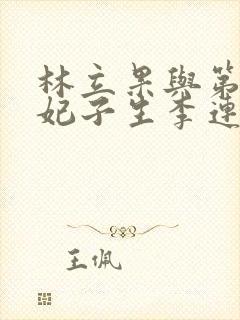 林立果與第
妃子生李連
王佩